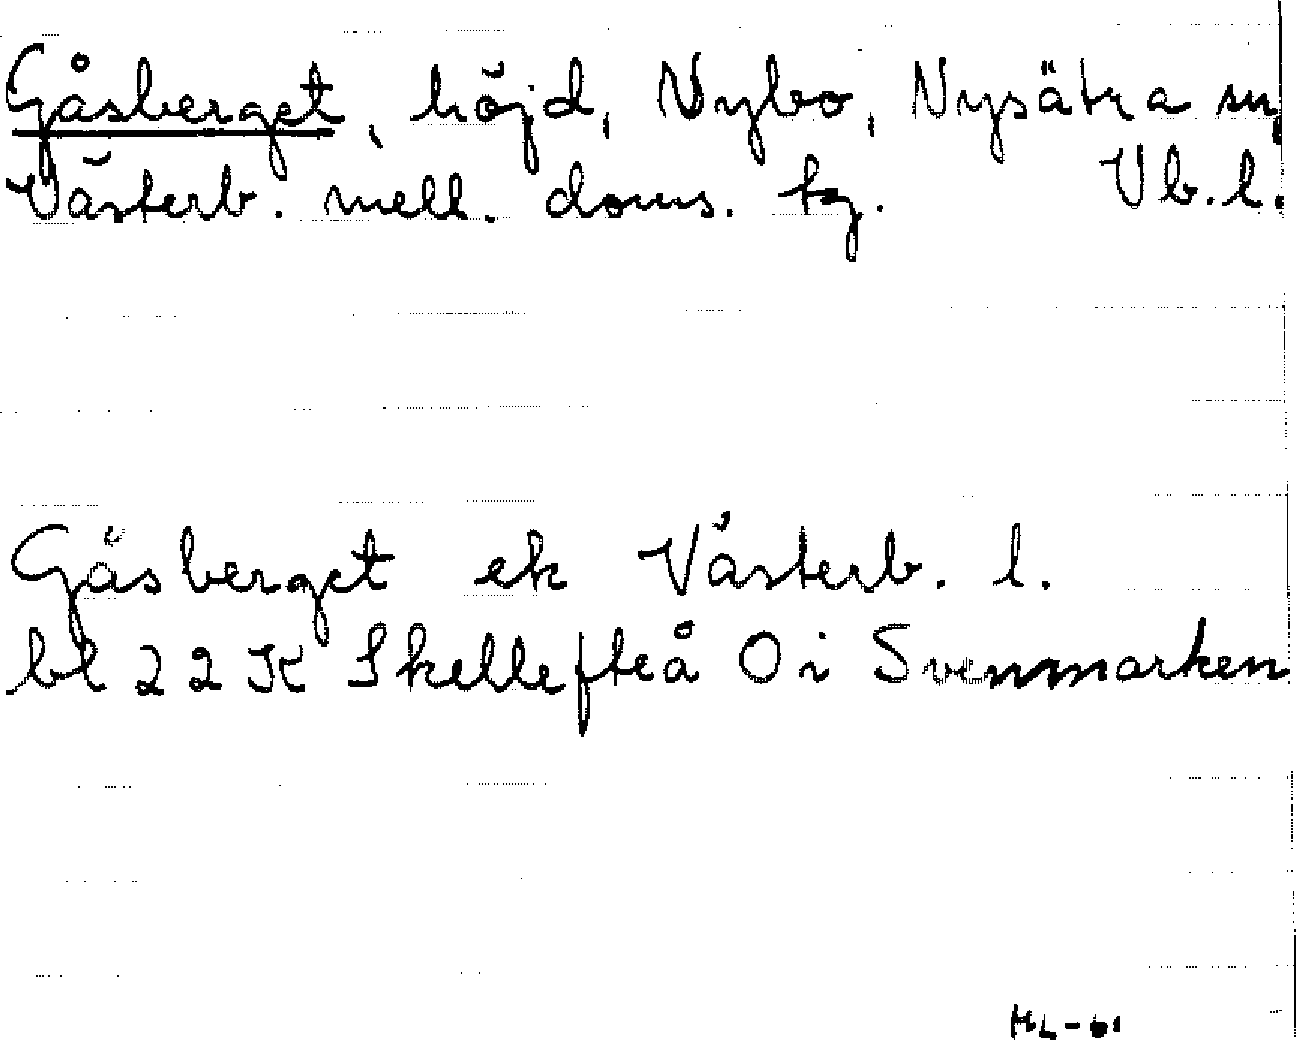 Gåsberget, höjd, Nybo, Nysätra sn,
Västerb. mell. doms. tg. Vb.l.
Gåsberget ek Västerb. l.
bl 22K Skellefteå O i Svenmarken